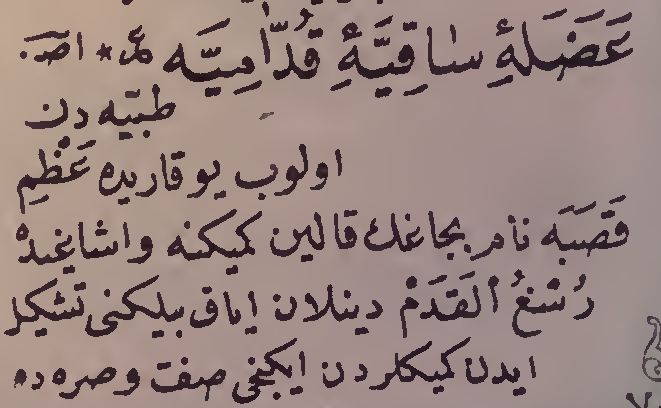 عَضَلَهٔ سَاقِيَّهٔ قُدَّامِيَّه عم * اصـ.
طبّيه دن
اولوب يوقاريده عَظْمِ
قَصَبَه نام بجاغك قالين كميكنه و اشاغيده
رُسْغُ ٱلْقَدَمْ دينلان اياق بيلكنى تشكل
ايدن كميكلردن ايكنجى صف و صره ده